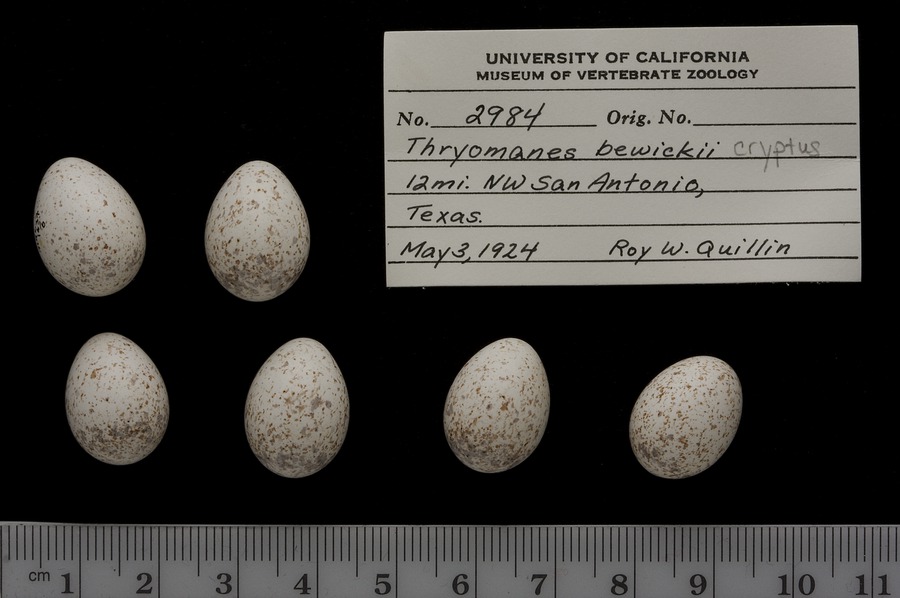 UNIVERSITY OF CALIFORNIA
MUSEUM OF VERTEBRATE ZOOLOGY
No. 2984 Orig. No.
Thryomanes bewickii cryptus
12mi. NW San Antonio,
Texas.
May 3, 1924 Roy W. Quillin
cm 1 2 3 4 5 6 7 8 9 10 11